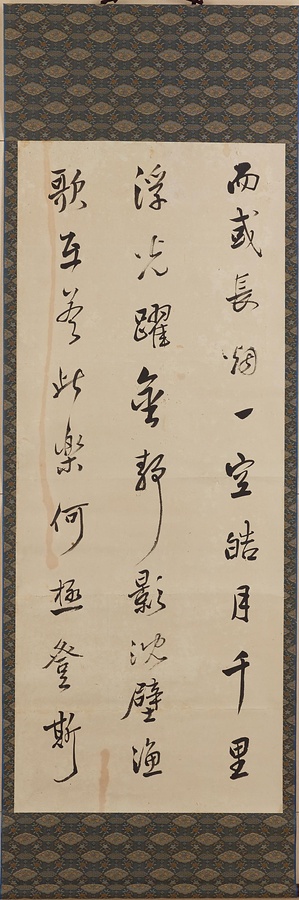 而或長烟一空皓月千里
浮光躍金静影沈璧漁
歌互答此楽何極登斯